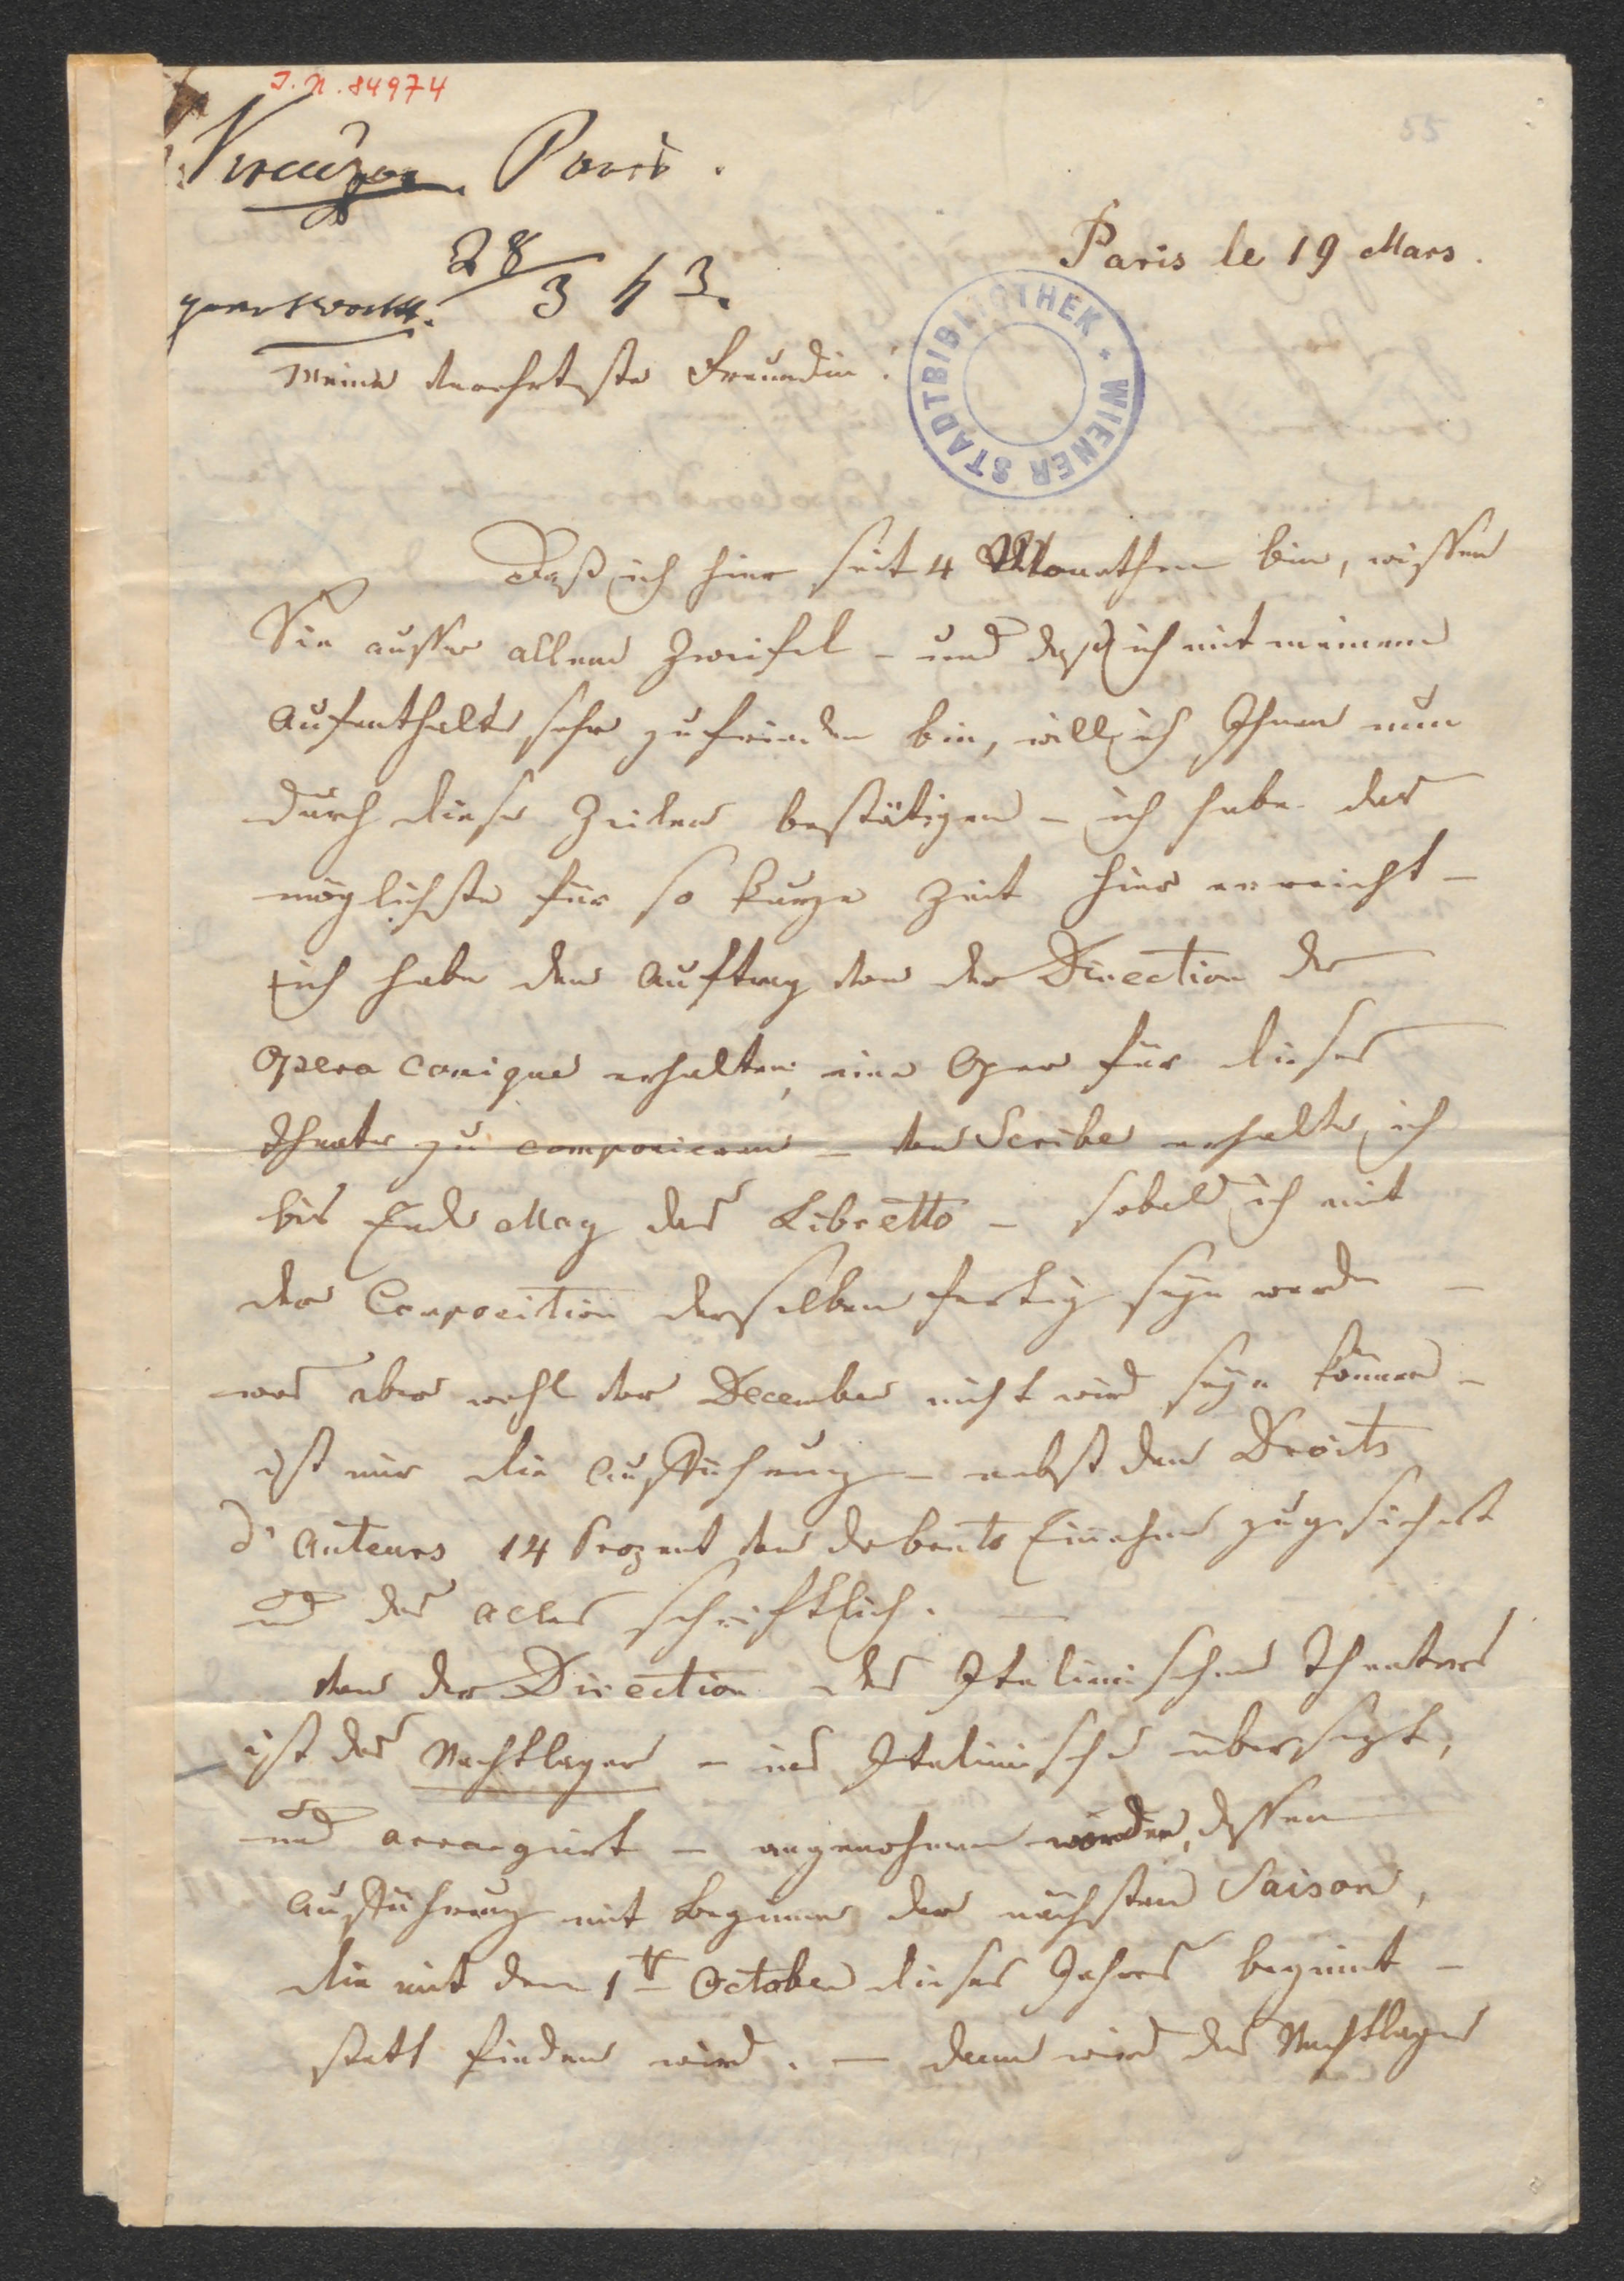 I. N. 84974
55
Kreutzer Paris.
28/3 43.
Paris le 19 Mars.
beantwortet.
Meine verehrteste Freundin!
WIENER STADTBIBLIOTHEK
Daß ich hier seit 4 Monathen bin, wissen
Sie ausser allem Zweifel – und daß ich mit meinem
Aufenthalte sehr zufrieden bin, will ich Ihnen nun
durch diese Zeilen bestätigen – ich habe das
möglichste für so kurze Zeit hier erreicht –
ich habe den Auftrag von der Direction der
Opera comique erhalten, eine Oper für dieses
Theater zu componieren – von Scribe erhalte ich
bis Ende May das Libretto – sobald ich mit
der Composition desselben fertig seyn werde –
was aber wohl vor December nicht wird seyn können –
ist mir die Aufführung – nebst den Droits
d'Auteurs 14 Prozent von der brutto Einnahme zugesichert
und das alles schriftlich. —
Von der Direction des Italienischen Theaters
ist das Nachtlager – ins Italienische übersezt,
und arrangirt – angenohmen worden, dessen
Aufführung mit Beginn der nächsten Saison,
die mit dem 1t October dieses Jahres beginnt –
statt finden wird. — dann wird das Nachtlager